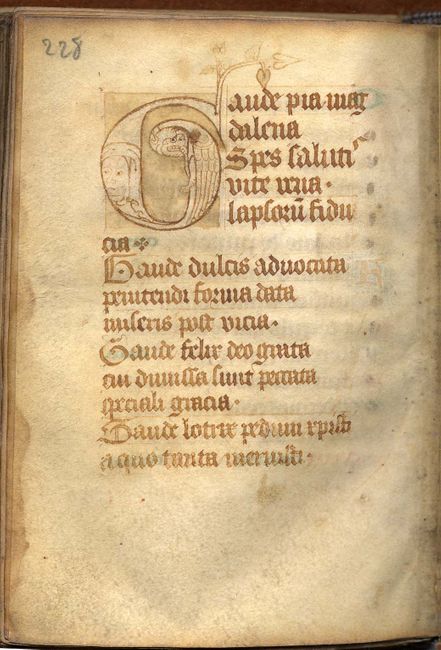 228
Gaude pia mag
dalena
Spes saluti
vite vena·
lapsorū fidu
cia·:·
Gaude dulcis advocata
penitendi forma data
miseris post vicia·
Gaude felix deo grata
cui dimissa sunt peccata
speciali gracia·
Gaude lotrix pedum xpisti
a quo tanta meruisti·